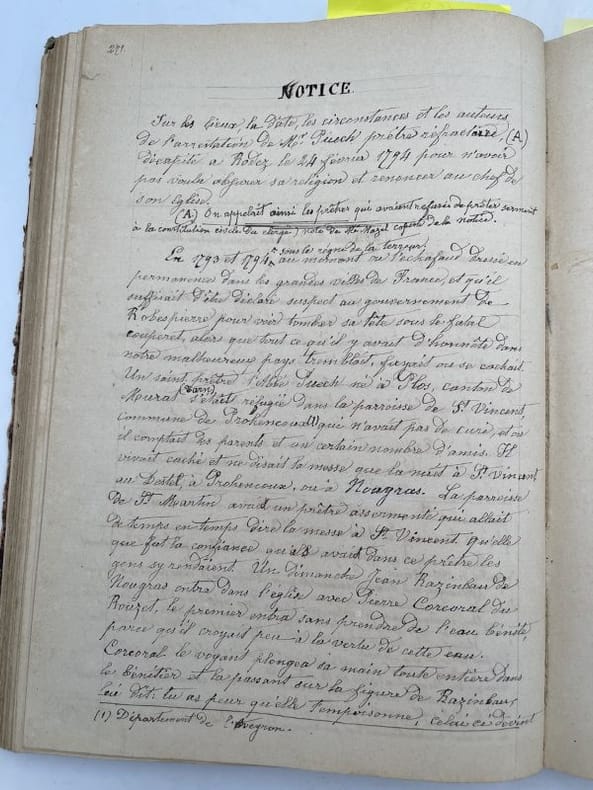 271.
NOTICE
Sur les lieux, la date, les circonstances et les auteurs
de l'arrestation de Mr. Puech prêtre réfractaire, (A)
décapité a Rodez le 24 février 1794 pour n'avoir
pas voulu abjurer sa religion et renoncer au chef de
son Eglise.
(A) On appelait ainsi les prêtres qui avaient refusé de prêter serment
à la constitution civile du clergé) note de Mr Mazel copiste de la notice.
sous le règne de la terreur,
En 1793 et 1794 au moment où l'échafaud dressé en
permanence dans les grandes villes de France, et qu'il
suffisait d'être déclaré suspect au gouvernement de
Robespierre pour voir tomber sa tête sous le fatal
couperet, alors que tout ce qu'il y avait d'honnête dans
notre malheureux pays tremblait, fuyait ou se cachait.
Un saint prêtre l'abbé Puech né à Plos, canton de
(Tarn)
Murat s'était réfugié dans la parroisse de St. Vincent,
commune de Prohencoux(1) qui n'avait pas de curé, et où
il comptait des parents et un certain nombre d'amis. Il
vivait caché et ne disait la messe que la nuit à St. Vincent
au Destel à Prohencoux, ou à Nougras. La parroisse
de St. Martin avait un prêtre assermenté qui allait
de temps en temps dire la messe à St. Vincent quelle
que fut la confiance qu'on avait dans ce prêtre les
gens s'y rendaient. Un dimanche Jean Razimbau de
Nougras entra dans l'église avec Pierre Corcoral du
Rouzet, le premier entra sans prendre de l'eau bénite,
parce qu'il croyait peu à la vertu de cette eau.
Corcoral le voyant plongea sa main toute entière dans
le bénitier et la passant sur la figure de Razimbau,
lui dit: tu as peur qu'elle t'empoisonne, celui ci devint
(1) Département de l'Aveyron.